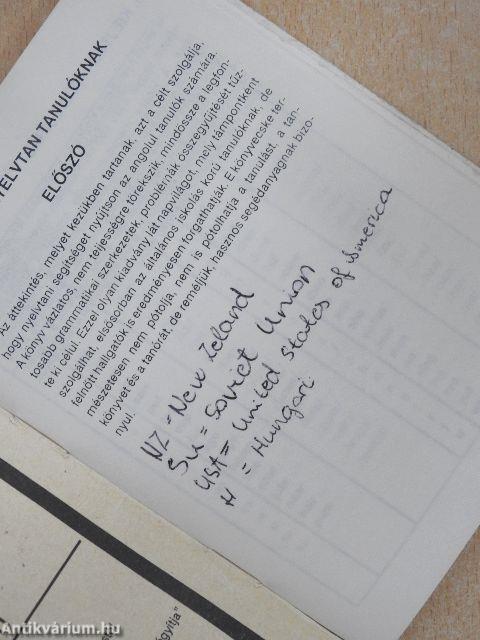 YELVTAN TANULÓKNAK
ELŐSZÓ
Az áttekintés, melyet kezükben tartanak, azt a célt szolgálja,
hogy nyelvtani segítséget nyújtson az angolul tanulók számára.
A könyv vázlatos, nem teljességre törekszik, mindössze a legfon-
tosabb grammatikai szerkezetek, problémák összegyűjtését tűz-
te ki célul. Ezzel olyan kiadvány lát napvilágot, mely támpontként
szolgálhat, elsősorban az általános iskolás korú tanulóknak, de
felnőtt hallgatók is eredményesen forgathatják. E könyvecske ter-
mészetesen nem pótolja, nem is potolhatja a tanulást, a tan-
könyvet és a tanórát, de reméljük, hasznos segédanyagnak bizo-
nyul.
NZ = New Zeland
SU = Soviet Union
USA = United States of America
H = Hungari
gyítja"
Antikvárium.hu